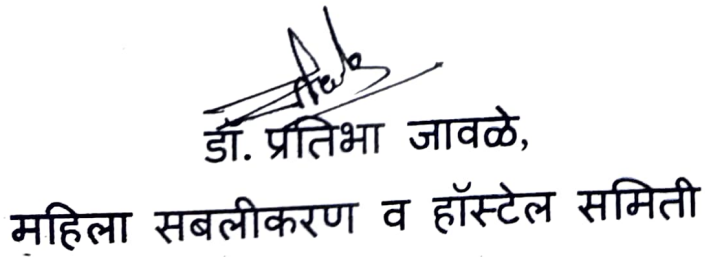 डॉ. प्रतिभा जावळे,
महिला सबलीकरण व हॉस्टेल समिती